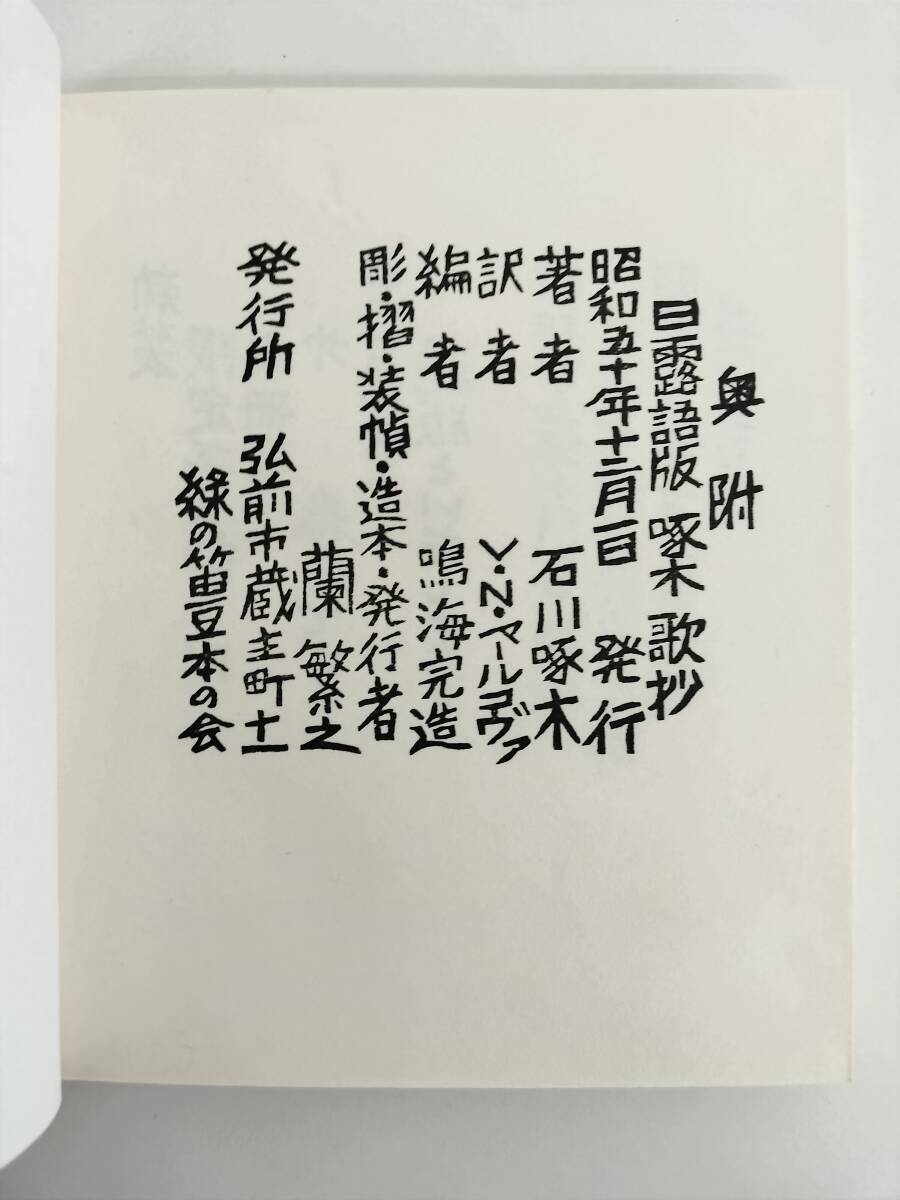 奥附
日露語版 啄木歌抄
昭和五十年十二月一日 発行
著者 石川啄木
訳者 V・N・マールコヴァ
編者 鳴海完造
彫・摺・装幀・造本・発行者
蘭繁之
発行所 弘前市蔵主町十一
緑の笛豆本の会